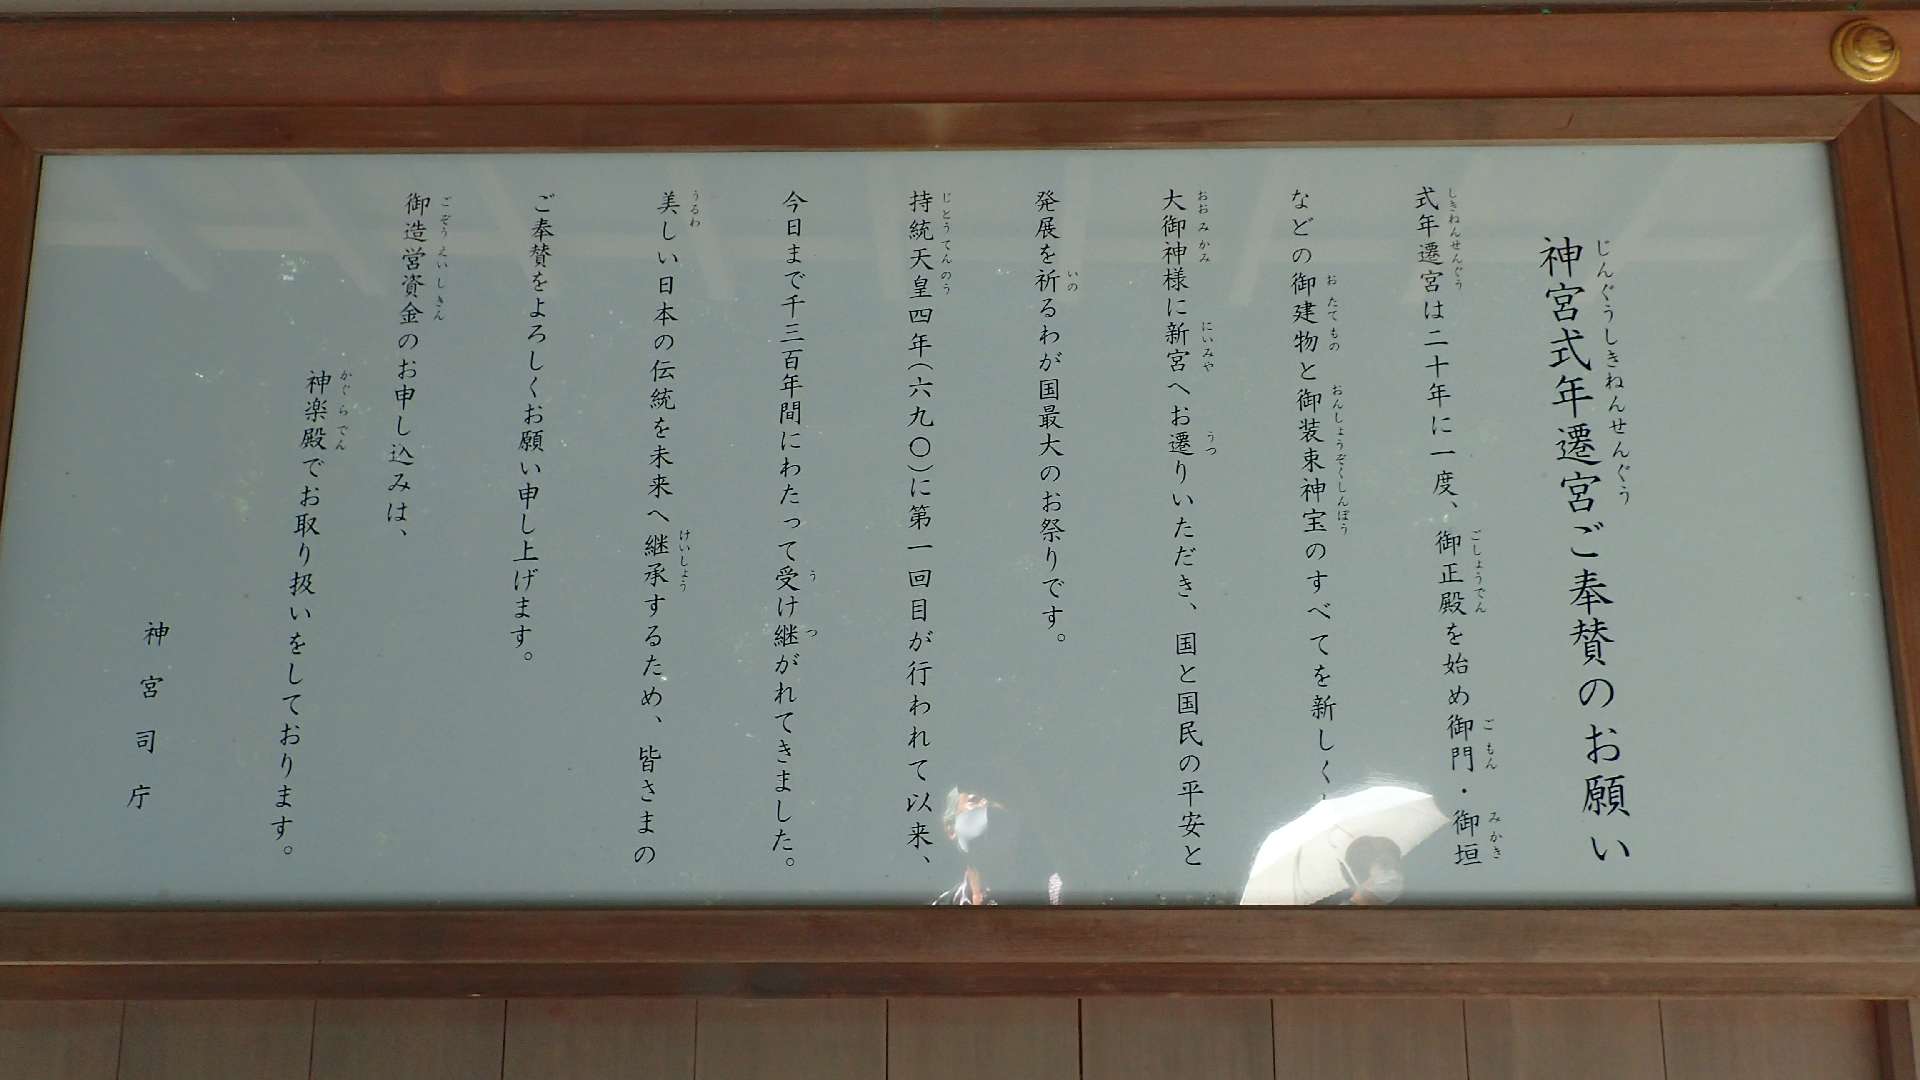 神宮式年遷宮ご奉賛のお願い
式年遷宮は二十年に一度、御正殿を始め御門・御垣
などの御建物と御装束神宝のすべてを新しく
大御神様に新宮へお遷りいただき、国と国民の平安と
発展を祈るわが国最大のお祭りです。
持統天皇四年（六九〇）に第一回目が行われて以来、
今日まで千三百年間にわたって受け継がれてきました。
美しい日本の伝統を未来へ継承するため、皆さまの
ご奉賛をよろしくお願い申し上げます。
御造営資金のお申し込みは、
神楽殿でお取り扱いをしております。
神宮司庁